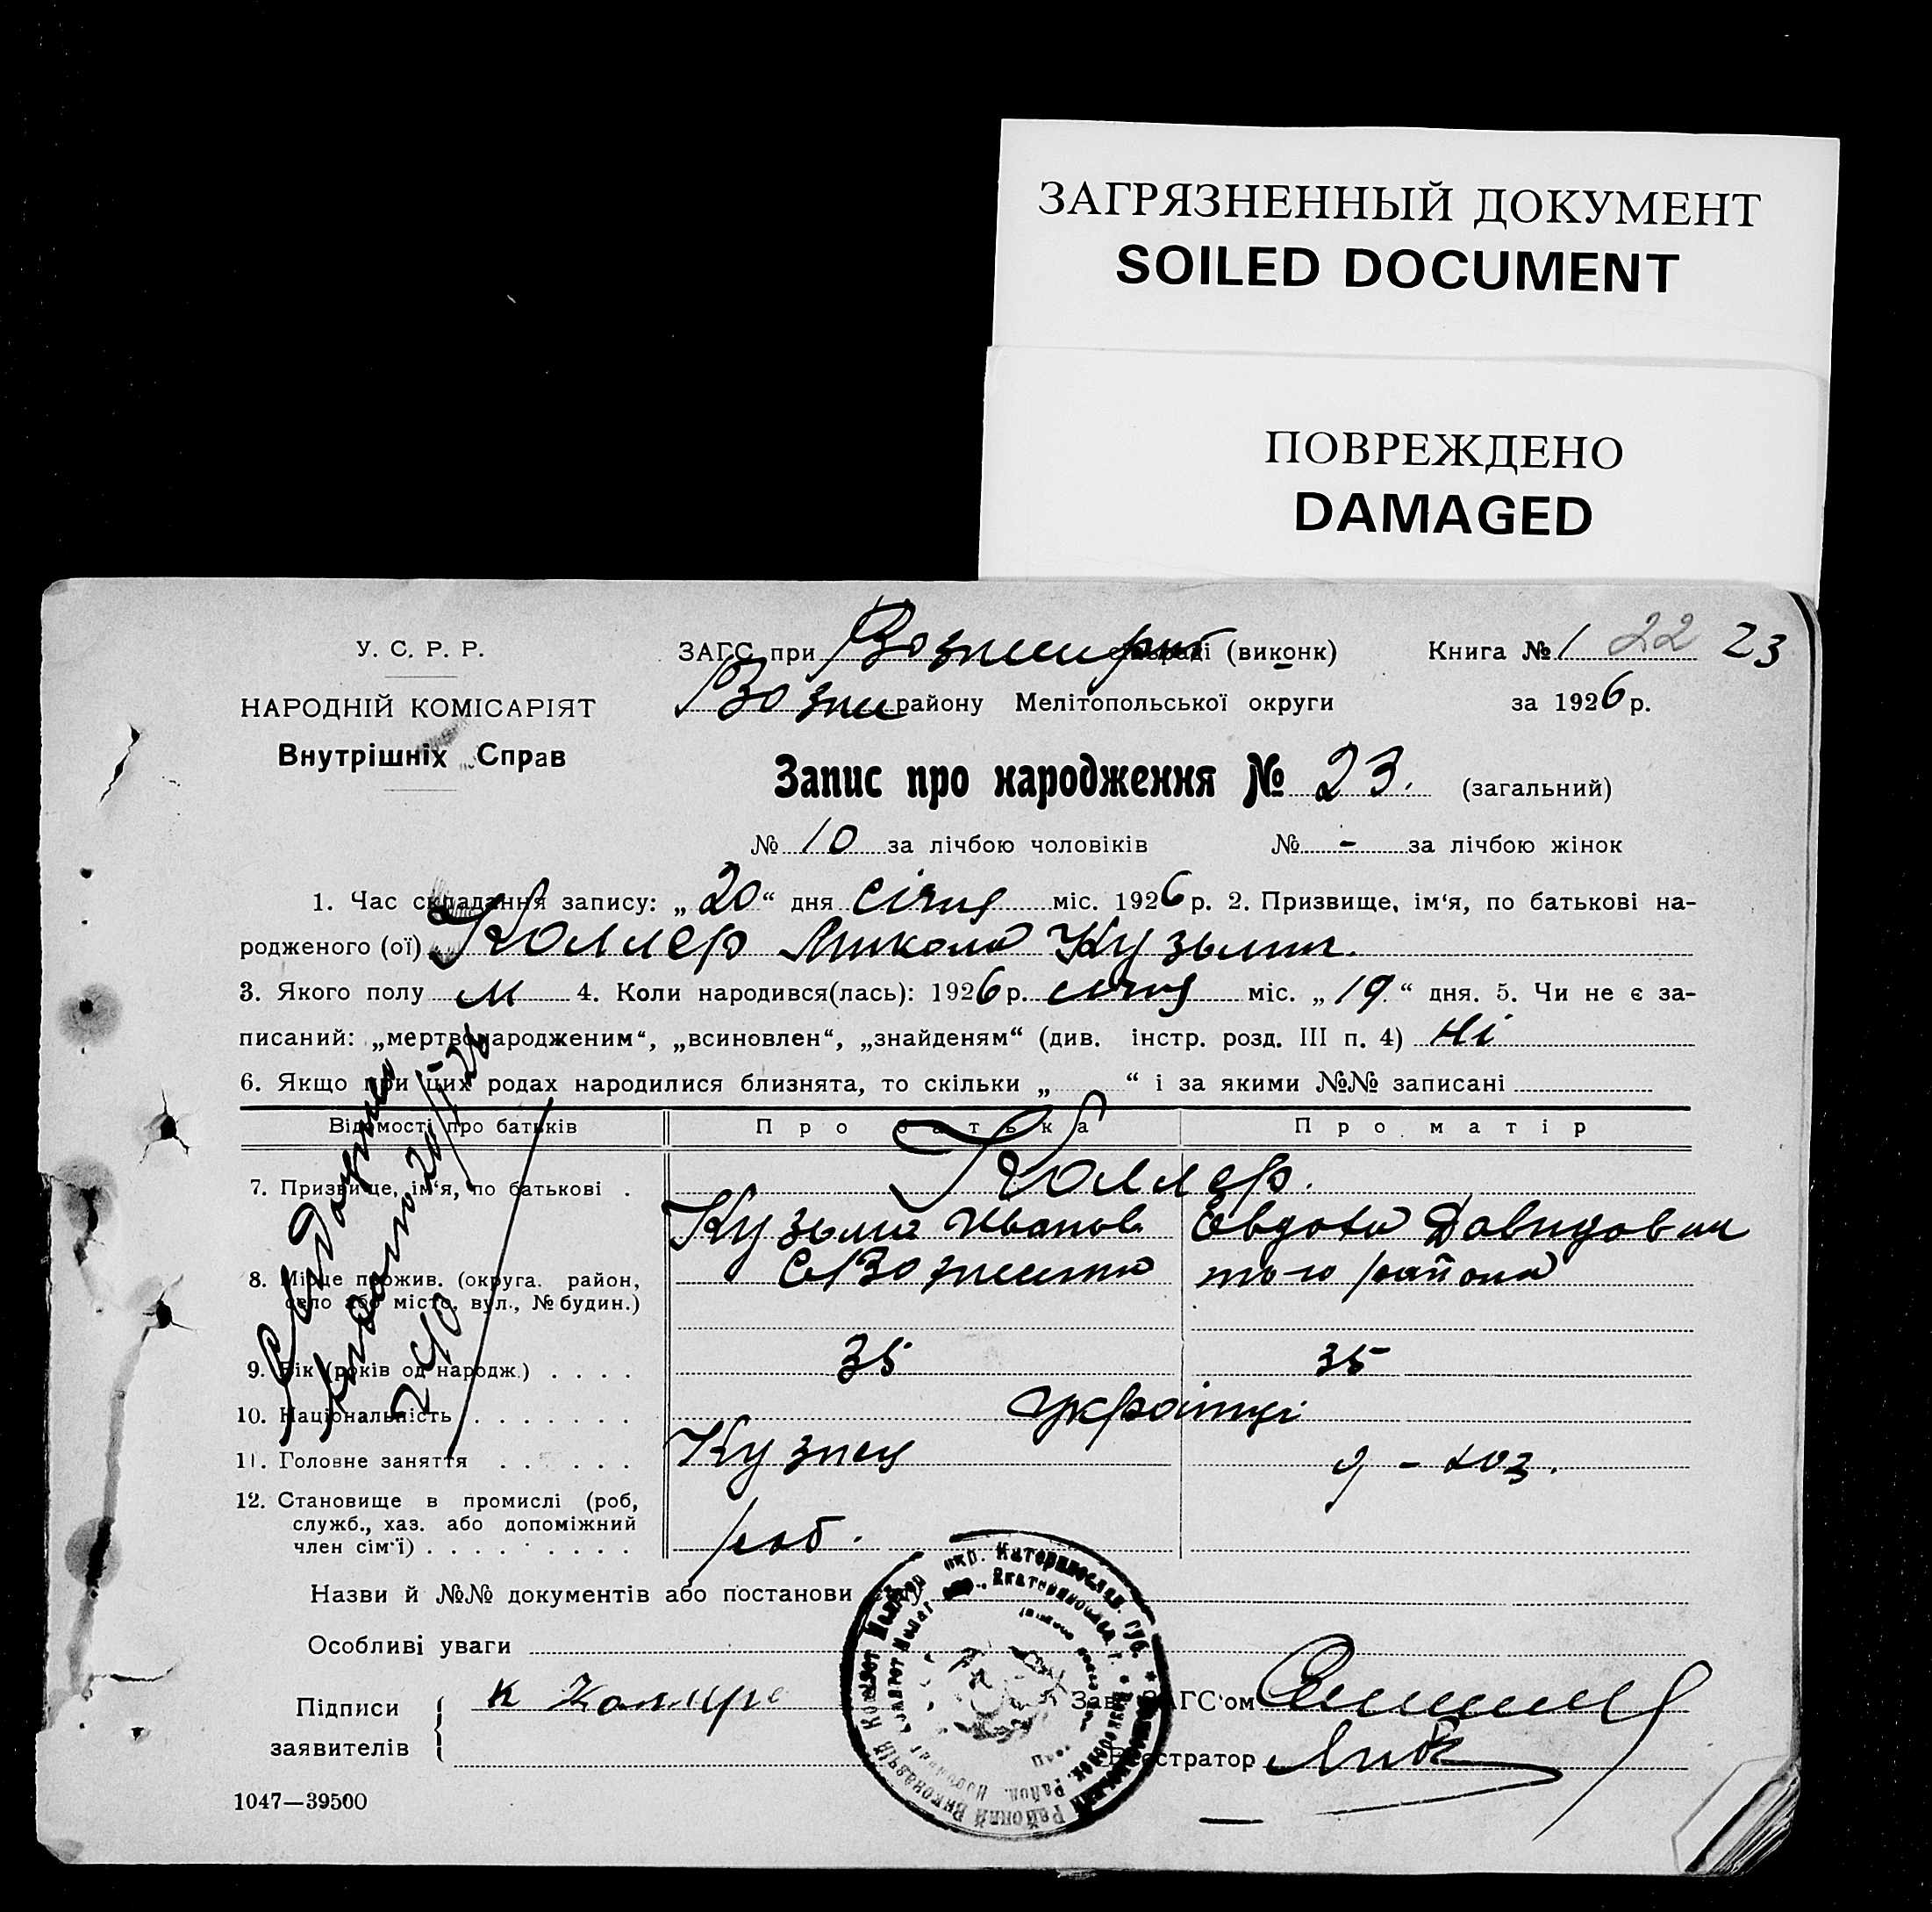 ЗАГРЯЗНЕННЫЙ ДОКУМЕНТ
SOILED DOCUMENT
ПОВРЕЖДЕНО
DAMAGED
У. С. Р. Р.
НАРОДНІЙ КОМІСАРІЯТ
Внутрішніх Справ
ЗАГС при (виконк) Книга № 1 22 23
району Мелітопольської округи за 1926 р.
Запис про народження № 23. (загальний)
№ 10 за лічбою чоловіків № - за лічбою жінок
1. Час складання запису: „20“ дня січня міс. 1926 р. 2. Призвище, ім‘я, по батькові на-
родженого (ої) Коллер Микола Кузьмич.
3. Якого полу М 4. Коли народився(лась): 1926 р. січня міс. „19“ дня. 5. Чи не є за-
писаний: „мертвонародженим“, „всиновлен“, „знайденям“ (див. інстр. розд. III п. 4) Ні
6. Якщо при цих родах народилися близнята, то скільки „ “ і за якими №№ записані
Відомості про батьків Про батька Про матір
7. Призвище, ім‘я, по батькові . Коллер.
Кузьма Иванов Євдокия Давидовна
8. Місце прожив. (округа. район,
село або місто, вул., № будин.)
того района
9. Вік (років од народж.) . . . . 35 35
10. Національність . . . . . . . українці
11. Головне заняття . . . . . . Кузнец д-хоз.
12. Становище в промислі (роб,
служб., хаз. або допоміжний
член сім‘ї) . . . . . . . . . роб.
Назви й №№ документів або постанови суду
Особливі уваги
Підписи
заявителів
Зав. ЗАГС‘ом
Реєстратор
1047—39500